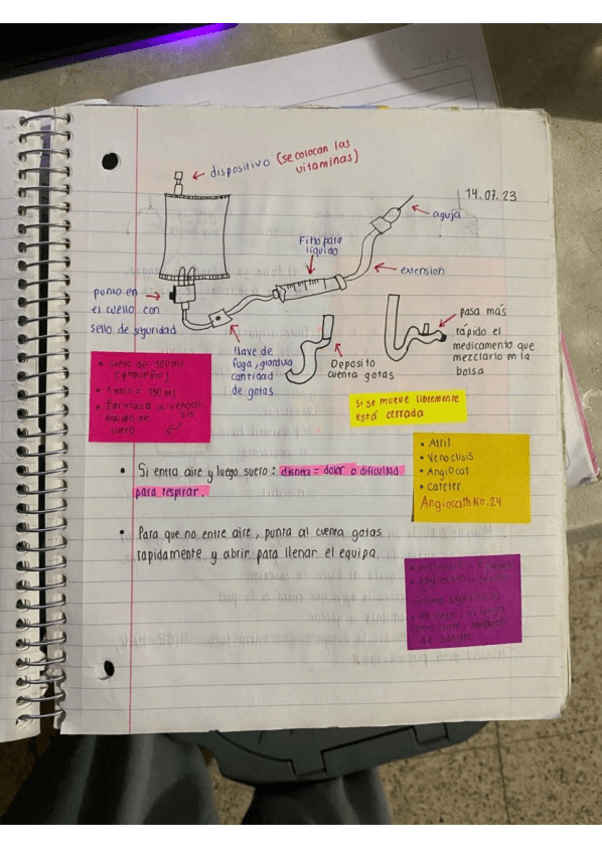 dispositivo (se colocan las
vitaminas)
14.07.23
aguja
Filtro para
líquido
extension
punto en
el cuello con
sello de seguridad
llave de
fuga, glandula
cantidad
de gotas
Deposito
cuenta gotas
pasa más
rápido el
medicamento que
mezclarlo en la
bolsa
• suero de 100 ml
(pequeño)
• 1 vaso = 150 ml
• Farmacia =
equipo de
suero
Si se mueve libremente
está cerrada
• Atril
• Venoclisis
• Angiocat
• Cateter
Angiocath No. 24
• Si entra aire y luego suero: disnea = dolor o dificultad
para respirar.
• Para que no entre aire, punta al cuenta gotas
rapidamente y abrir para llenar el equipo
de sangre